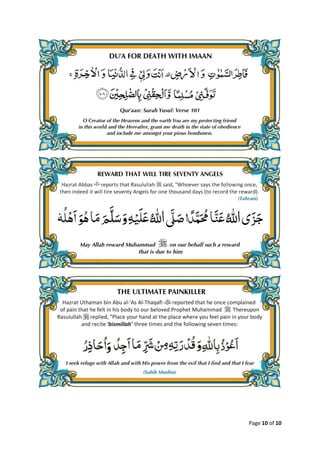 DU'A FOR DEATH WITH IMAAN
فَاطِرَ السَّمٰوٰتِ وَ الْاَرْضِ اَنْتَ وَلِيّٖ فِي الدُّنْيَا وَ الْاٰخِرَةِ
تَوَفَّنِيْ مُسْلِمًا وَّاَلْحِقْنِيْ بِالصّٰلِحِيْنَ ﴿١٠١﴾
Qur'aan: Surah Yusuf: Verse 101
O Creator of the Heavens and the earth You are my protecting friend
in this world and the Hereafter, grant me death in the state of obedience
and include me amongst your pious bondsmen.
REWARD THAT WILL TIRE SEVENTY ANGELS
Hazrat Abbas reports that Rasulullah ﷺ said, "Whoever says the following once,
then indeed it will tire seventy Angels for one thousand days (to record the reward).
(Tabrani)
جَزَى اللهُ عَنَّا مُحَمَّدًا صَلَّى اللهُ عَلَيْهِ وَسَلَّمَ مَا هُوَ اَهْلُهُ
May Allah reward Muhammad ﷺ on our behalf such a reward
that is due to him
THE ULTIMATE PAINKILLER
Hazrat Uthaman bin Abu al-'As Al-Thaqafi reported that he once complained
of pain that he felt in his body to our beloved Prophet Muhammad ﷺ Thereupon
Rasulullah ﷺ replied, "Place your hand at the place where you feel pain in your body
and recite 'bismillah' three times and the following seven times:
اَعُوْذُ بِاللهِ وَقُدْرَتِهِ مِنْ شَرِّ مَا اَجِدُ وَاُحَاذِرُ
I seek refuge with Allah and with His power from the evil that I find and that I fear
(Sahih Muslim)
Page 10 of 10